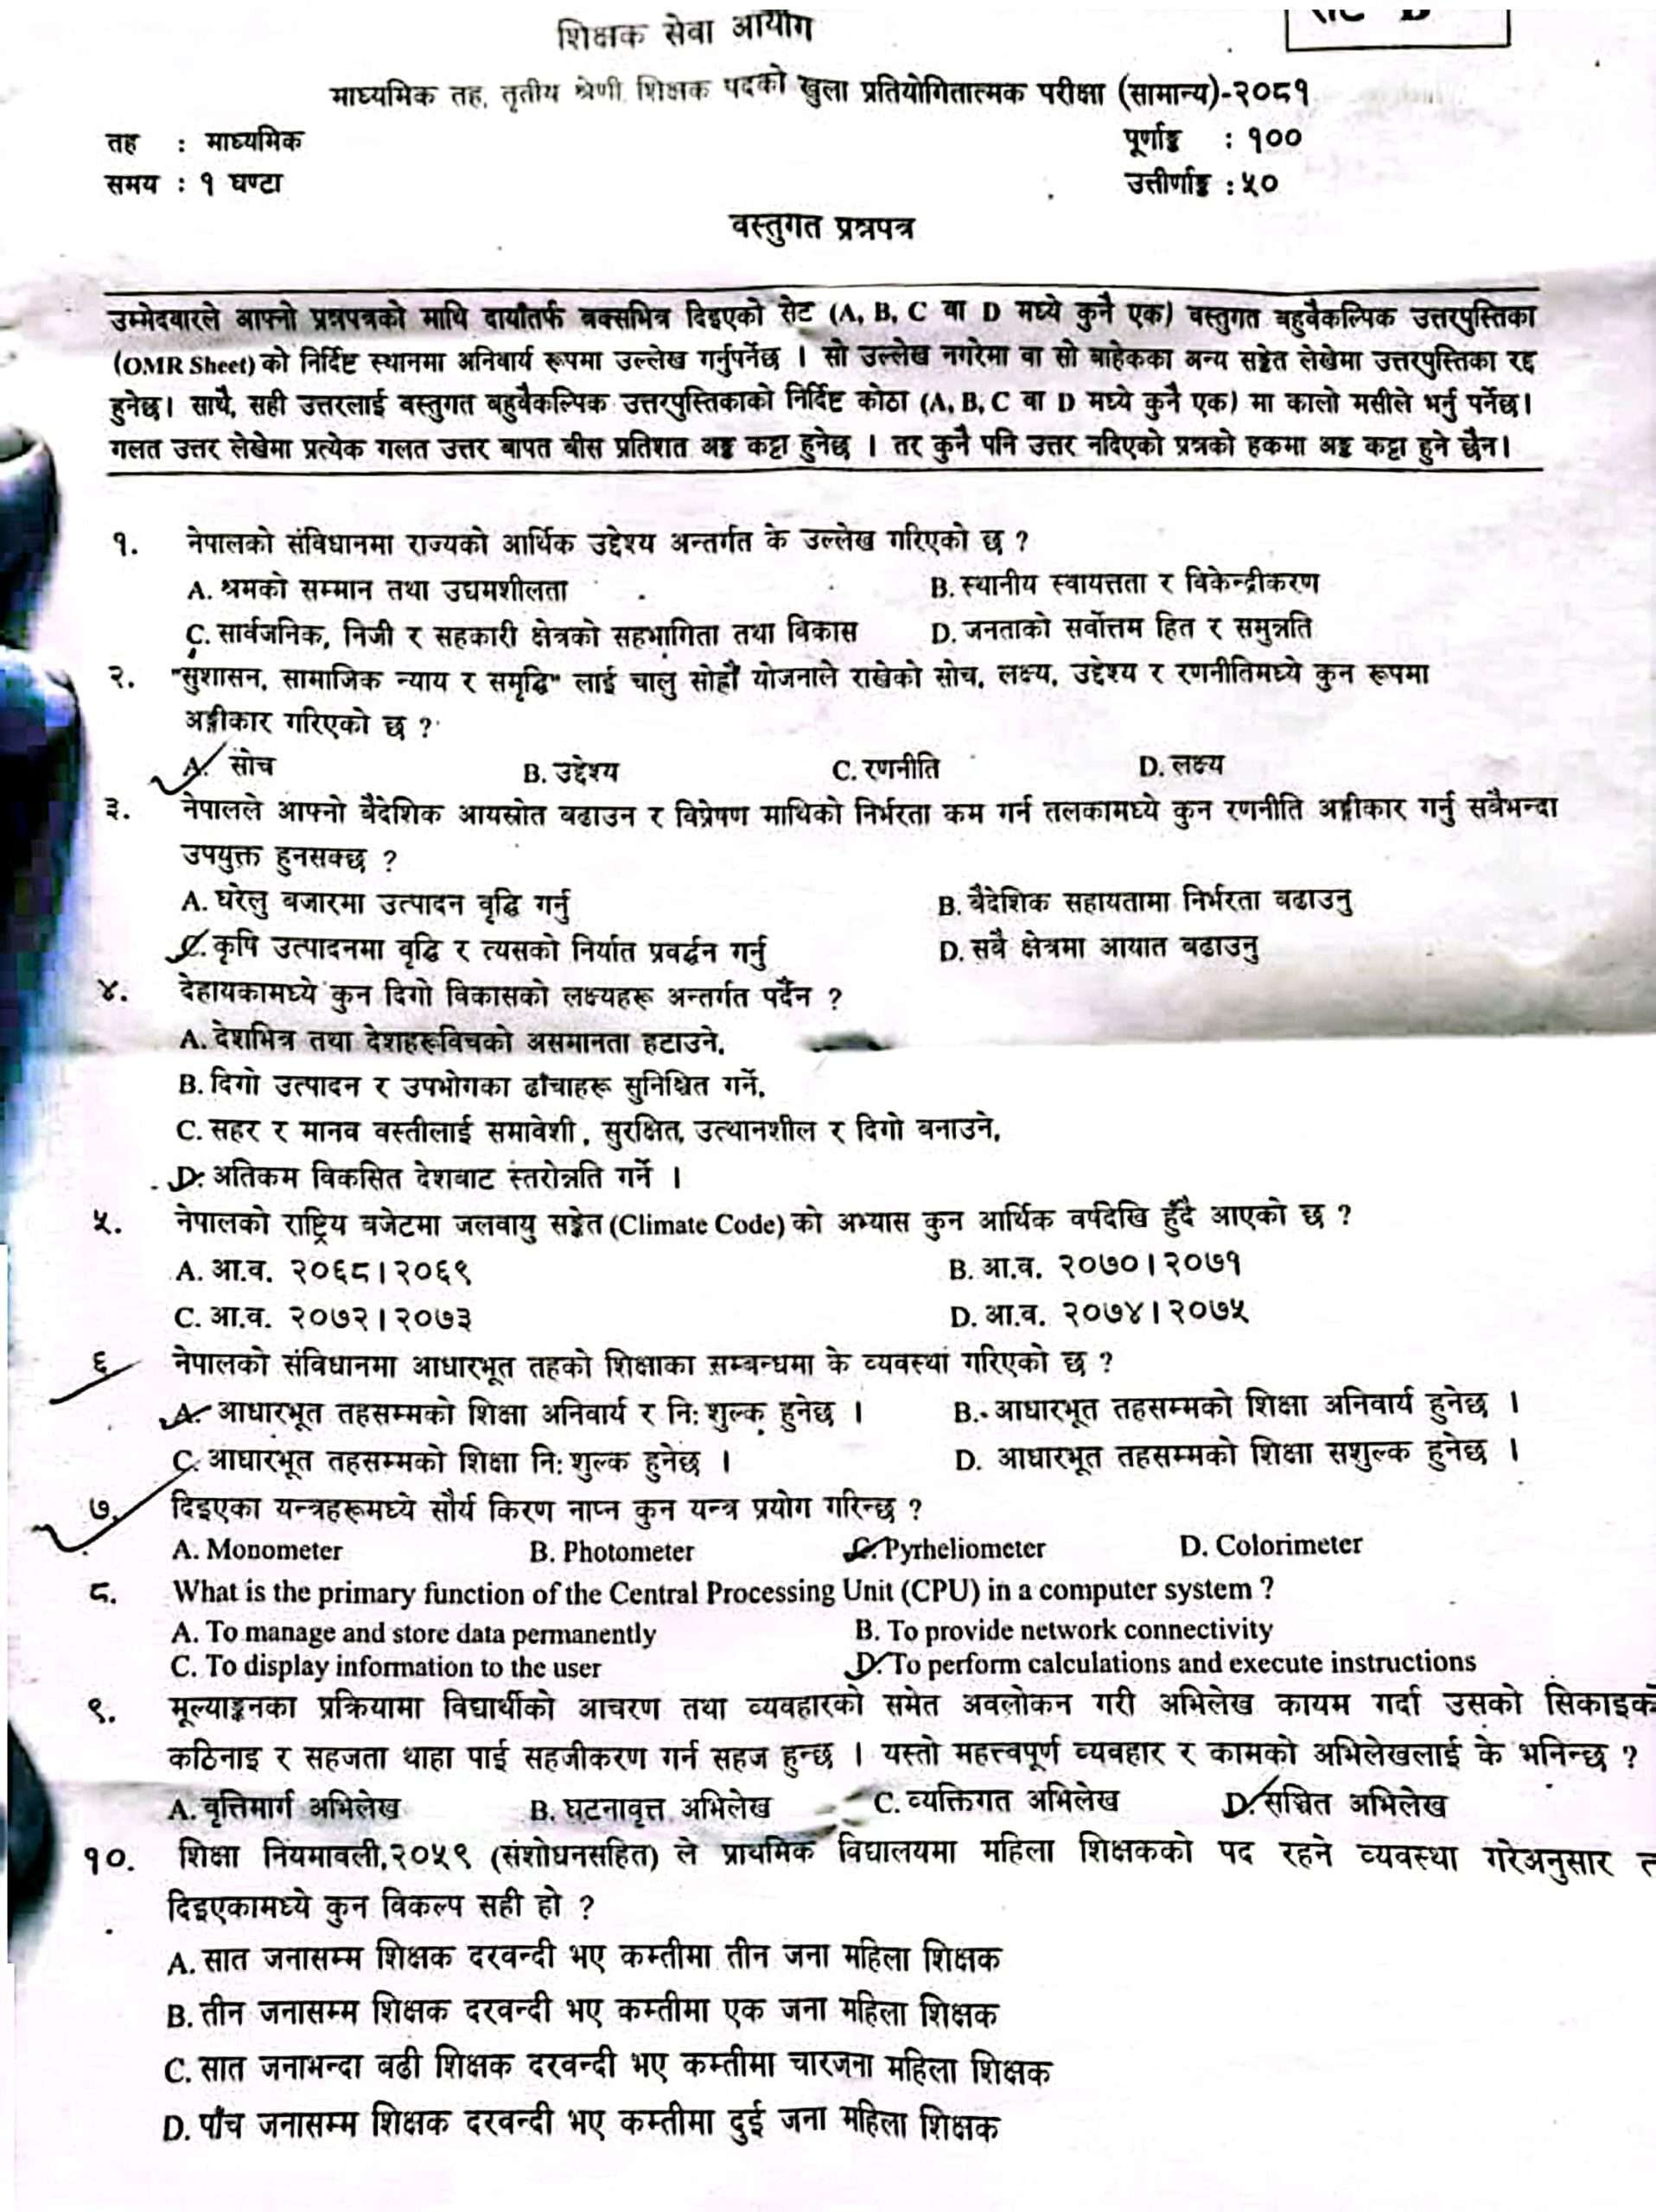 शिक्षक सेवा आयोग
माध्यमिक तह, तृतीय श्रेणी शिक्षक पदको खुला प्रतियोगितात्मक परीक्षा (सामान्य)-२०८१
तह : माध्यमिक
पूर्णाङ्क : १००
समय : १ घण्टा
उत्तीर्णाङ्क : ५०
वस्तुगत प्रश्नपत्र
उम्मेदवारले आफ्नो प्रश्नपत्रको माथि दायाँतर्फ बक्सभित्र दिइएको सेट (A, B, C वा D मध्ये कुनै एक) वस्तुगत बहुवैकल्पिक उत्तरपुस्तिका
(OMR Sheet) को निर्दिष्ट स्थानमा अनिवार्य रूपमा उल्लेख गर्नुपर्नेछ । सो उल्लेख नगरेमा वा सो बाहेकका अन्य सङ्केत लेखेमा उत्तरपुस्तिका रद्द
हुनेछ। साथै, सही उत्तरलाई वस्तुगत बहुवैकल्पिक उत्तरपुस्तिकाको निर्दिष्ट कोठा (A, B, C वा D मध्ये कुनै एक) मा कालो मसीले भर्नु पर्नेछ।
गलत उत्तर लेखेमा प्रत्येक गलत उत्तर बापत बीस प्रतिशत अङ्क कट्टा हुनेछ । तर कुनै पनि उत्तर नदिएको प्रश्नको हकमा अङ्क कट्टा हुने छैन।
१. नेपालको संविधानमा राज्यको आर्थिक उद्देश्य अन्तर्गत के उल्लेख गरिएको छ ?
A. श्रमको सम्मान तथा उद्यमशीलता B. स्थानीय स्वायत्तता र विकेन्द्रीकरण
C. सार्वजनिक, निजी र सहकारी क्षेत्रको सहभागिता तथा विकास D. जनताको सर्वोत्तम हित र समुन्नति
२. "सुशासन, सामाजिक न्याय र समृद्धि" लाई चालु सोह्रौँ योजनाले राखेको सोच, लक्ष्य, उद्देश्य र रणनीतिमध्ये कुन रूपमा
अङ्गीकार गरिएको छ ?
A. सोच B. उद्देश्य C. रणनीति D. लक्ष्य
३. नेपालले आफ्नो वैदेशिक आयस्रोत बढाउन र विप्रेषण माथिको निर्भरता कम गर्न तलकामध्ये कुन रणनीति अङ्गीकार गर्नु सबैभन्दा
उपयुक्त हुनसक्छ ?
A. घरेलु बजारमा उत्पादन वृद्धि गर्नु B. वैदेशिक सहायतामा निर्भरता बढाउनु
C. कृषि उत्पादनमा वृद्धि र त्यसको निर्यात प्रवर्द्धन गर्नु D. सबै क्षेत्रमा आयात बढाउनु
४. देहायकामध्ये कुन दिगो विकासको लक्ष्यहरू अन्तर्गत पर्दैन ?
A. देशभित्र तथा देशहरूबिचको असमानता हटाउने,
B. दिगो उत्पादन र उपभोगका ढाँचाहरू सुनिश्चित गर्ने,
C. सहर र मानव वस्तीलाई समावेशी, सुरक्षित, उत्थानशील र दिगो बनाउने,
D. अतिकम विकसित देशबाट स्तरोन्नति गर्ने ।
५. नेपालको राष्ट्रिय बजेटमा जलवायु सङ्केत (Climate Code) को अभ्यास कुन आर्थिक वर्षदेखि हुँदै आएको छ ?
A. आ.व. २०६८।२०६९ B. आ.व. २०७०।२०७१
C. आ.व. २०७२।२०७३ D. आ.व. २०७४।२०७५
६ नेपालको संविधानमा आधारभूत तहको शिक्षाका सम्बन्धमा के व्यवस्था गरिएको छ ?
A. आधारभूत तहसम्मको शिक्षा अनिवार्य र नि: शुल्क हुनेछ । B. आधारभूत तहसम्मको शिक्षा अनिवार्य हुनेछ ।
C. आधारभूत तहसम्मको शिक्षा नि: शुल्क हुनेछ । D. आधारभूत तहसम्मको शिक्षा सशुल्क हुनेछ ।
७. दिइएका यन्त्रहरूमध्ये सौर्य किरण नाप्न कुन यन्त्र प्रयोग गरिन्छ ?
A. Monometer B. Photometer C. Pyrheliometer D. Colorimeter
८. What is the primary function of the Central Processing Unit (CPU) in a computer system ?
A. To manage and store data permanently B. To provide network connectivity
C. To display information to the user D. To perform calculations and execute instructions
९. मूल्याङ्कनका प्रक्रियामा विद्यार्थीको आचरण तथा व्यवहारको समेत अवलोकन गरी अभिलेख कायम गर्दा उसको
कठिनाइ र सहजता थाहा पाई सहजीकरण गर्न सहज हुन्छ । यस्तो महत्त्वपूर्ण व्यवहार र कामको अभिलेखलाई के भनिन्छ ?
A. वृत्तिमार्ग अभिलेख B. घटनावृत्त अभिलेख C. व्यक्तिगत अभिलेख D. सञ्चित अभिलेख
१०. शिक्षा नियमावली,२०५९ (संशोधनसहित) ले प्राथमिक विद्यालयमा महिला शिक्षकको पद रहने व्यवस्था गरेअनुसार
दिइएकामध्ये कुन विकल्प सही हो ?
A. सात जनासम्म शिक्षक दरबन्दी भए कम्तीमा तीन जना महिला शिक्षक
B. तीन जनासम्म शिक्षक दरबन्दी भए कम्तीमा एक जना महिला शिक्षक
C. सात जनाभन्दा बढी शिक्षक दरबन्दी भए कम्तीमा चारजना महिला शिक्षक
D. पाँच जनासम्म शिक्षक दरबन्दी भए कम्तीमा दुई जना महिला शिक्षक